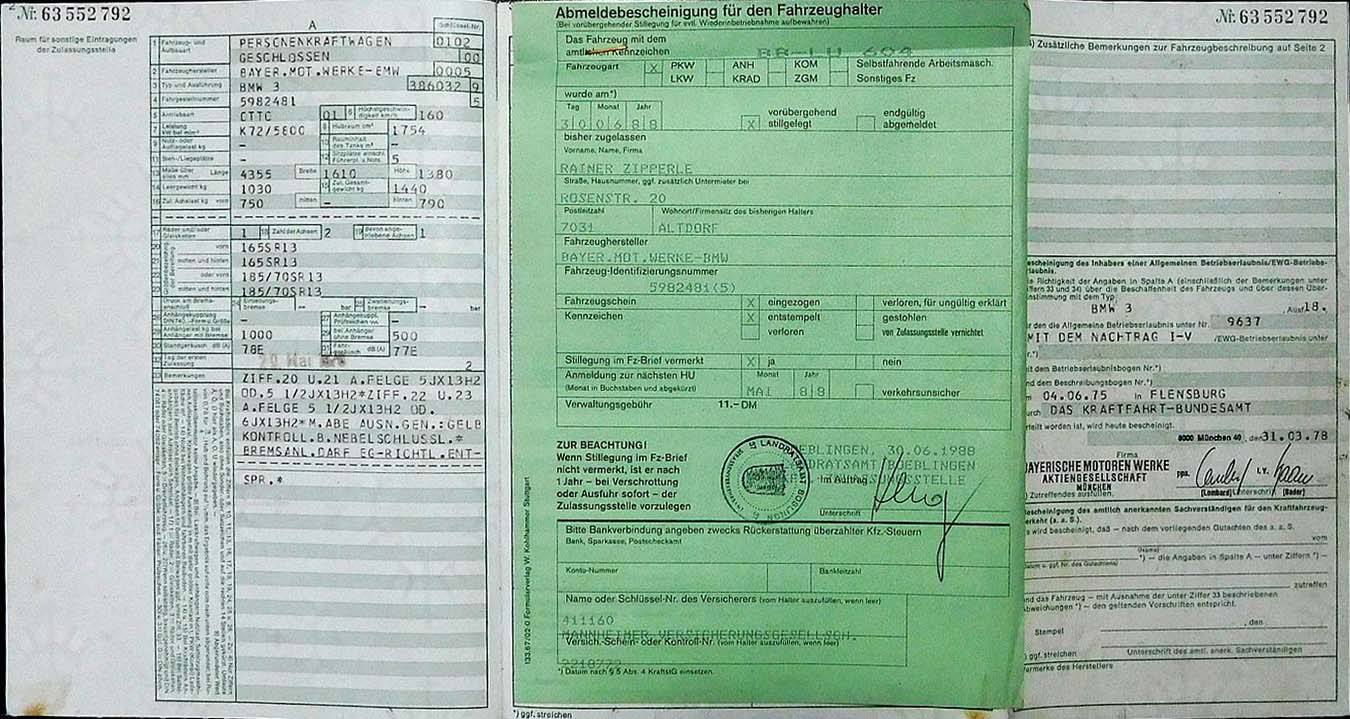 Nr. 63 552 792
Raum für sonstige Eintragungen
der Zulassungsstelle
A
Schlüssel-Nr.
1 Fahrzeug- und Aufbauart PERSONENKRAFTWAGEN 0102
GESCHLOSSEN 00
2 Fahrzeughersteller BAYER.MOT.WERKE-BMW 0005
3 Typ und Ausführung BMW 3 386032 9
4 Fahrgestellnummer 5982481 5
5 Antriebsart OTTO 01 6 Höchstgeschwindigkeit km/h 160
7 Leistung kW bei min⁻¹ K72/5800 8 Hubraum cm³ 1754
9 Nutz- oder Aufliegelast kg – 10 Rauminhalt des Tanks m³ –
11 Steh-/Liegeplätze – 12 Sitzplätze einschl. Führerpl. u. Nots. 5
13 Maße über alles mm Länge 4355 Breite 1610 Höhe 1380
14 Leergewicht kg 1030 15 Zul. Gesamtgewicht kg 1440
16 Zul. Achslast kg vorn 750 mitten – hinten 790
17 Räder und/oder Gleisketten 1 18 Zahl der Achsen 2 19 davon angetriebene Achsen 1
20 vorn 165SR13
21 mitten und hinten 165SR13
22 oder vorn 185/70SR13
23 mitten und hinten 185/70SR13
Größenbezeichnung der Bereifung
Überdruck am Bremsanschluß 24 Einleitungsbremse – bar 25 Zweileitungsbremse – bar
26 Anhängerkupplung DIN 740.. Form u. Größe – 27 Anhängekuppl. Prüfzeichen –
28 Anhängelast kg bei Anhänger mit Bremse 1000 29 bei Anhänger ohne Bremse 500
30 Standgeräusch dB (A) 78E 31 Fahrgeräusch dB (A) 77E
32 Tag der ersten Zulassung 2
33 Bemerkungen ZIFF.20 U.21 A.FELGE 5JX13H2
OD.5 1/2JX13H2*ZIFF.22 U.23
A.FELGE 5 1/2JX13H2 OD.
6JX13H2*M.ABE AUSN.GEN.:GELB
KONTROLL.B.NEBELSCHLUSSL.*
BREMSANL.DARF EG-RICHTL.ENT-
SPR.*
Abmeldebescheinigung für den Fahrzeughalter
(Bei vorübergehender Stillegung für evtl. Wiederinbetriebnahme aufbewahren)
Das Fahrzeug mit dem
amtlichen Kennzeichen BB-LU 604
Fahrzeugart X PKW ANH KOM Selbstfahrende Arbeitsmasch.
LKW KRAD ZGM Sonstiges Fz
wurde am*)
Tag Monat Jahr
300688 X vorübergehend stillgelegt endgültig abgemeldet
bisher zugelassen
Vorname, Name, Firma
RAINER ZIPPERLE
Straße, Hausnummer, ggf. zusätzlich Untermieter bei
ROSENSTR. 20
Postleitzahl Wohnort/Firmensitz des bisherigen Halters
7031 ALTDORF
Fahrzeughersteller
BAYER.MOT.WERKE-BMW
Fahrzeug-Identifizierungsnummer
5982481(5)
Fahrzeugschein X eingezogen verloren, für ungültig erklärt
Kennzeichen X entstempelt gestohlen
verloren von Zulassungsstelle vernichtet
Stillegung im Fz-Brief vermerkt X ja nein
Anmeldung zur nächsten HU Monat Jahr
(Monat in Buchstaben und abgekürzt) MAI 88 verkehrsunsicher
Verwaltungsgebühr 11.– DM
ZUR BEACHTUNG!
Wenn Stillegung im Fz-Brief
nicht vermerkt, ist er nach
1 Jahr – bei Verschrottung
oder Ausfuhr sofort – der
Zulassungsstelle vorzulegen
BOEBLINGEN, 30.06.1988
LANDRATSAMT BOEBLINGEN
Im Auftrag
Unterschrift
Bitte Bankverbindung angeben zwecks Rückerstattung überzahlter Kfz.-Steuern
Bank, Sparkasse, Postscheckamt
Konto-Nummer Bankleitzahl
Name oder Schlüssel-Nr. des Versicherers (vom Halter auszufüllen, wenn leer)
411160
MANNHEIMER VERSICHERUNGSGESELLSCH.
Versich.-Schein- oder Kontroll-Nr. (vom Halter auszufüllen, wenn leer)
*) Datum nach § 5 Abs. 4 KraftStG einsetzen.
133.67/02-0 Formularverlag W. Kohlhammer Stuttgart
*) ggf. streichen
Nr. 63 552 792
Zusätzliche Bemerkungen zur Fahrzeugbeschreibung auf Seite 2
escheinigung des Inhabers einer Allgemeinen Betriebserlaubnis/EWG-Betriebs-
laubnis.
e Richtigkeit der Angaben in Spalte A (einschließlich der Bemerkungen unter
ffern 33 und 34) über die Beschaffenheit des Fahrzeugs und über dessen Über-
nstimmung mit dem Typ:
BMW 3 , Ausf. 18.
r den die Allgemeine Betriebserlaubnis unter Nr. 9637
MIT DEM NACHTRAG I-V /EWG-Betriebserlaubnis unter
r.*)
it dem Betriebserlaubnisbogen Nr.*)
nd dem Beschreibungsbogen Nr.*)
m 04.06.75 in FLENSBURG
urch DAS KRAFTFAHRT-BUNDESAMT
rteilt worden ist, wird heute bescheinigt.
8000 München 40, den 31.03.78
Firma
BAYERISCHE MOTOREN WERKE
AKTIENGESELLSCHAFT
MÜNCHEN
ppa. i.V.
(Lombard) Unterschrift (Bader)
) Zutreffendes ausfüllen.
escheinigung des amtlich anerkannten Sachverständigen für den Kraftfahrzeug-
erkehr (a. a. S.).
s wird bescheinigt, daß – nach dem vorliegenden Gutachten des a. a. S.
vom
(Name)
*) – die Angaben in Spalte A – unter Ziffern *) –
(Datum u. ggf. Nr. des Gutachtens)
zutreffen
nd das Fahrzeug – mit Ausnahme der unter Ziffer 33 beschriebenen
bweichungen *) – den geltenden Vorschriften entspricht.
, den
Stempel
Unterschrift des amtl. anerk. Sachverständigen
) ggf. streichen
ermerke des Herstellers